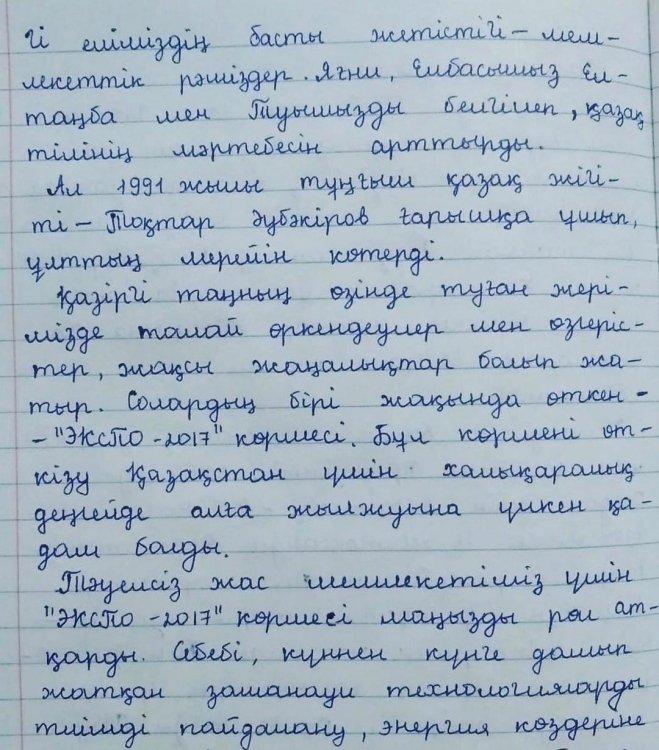 гі еліміздің басты жетістігі – мем-
лекеттік рәміздер. Яғни, Елбасымыз Ел-
таңба мен Туымызды белгілеп, қазақ
тілінің мәртебесін арттырды.
Ал 1991 жылы тұңғыш қазақ жігі-
ті – Тоқтар Әубәкіров ғарышқа ұшып,
ұлттың мерейін көтерді.
Қазіргі таңның өзінде туған жері-
мізде талай өркендеулер мен өзгеріс-
тер, жақсы жаңалықтар болып жа-
тыр. Солардың бірі жақында өткен -
- "ЭКСПО -2017" көрмесі. Бұл көрмені өт-
кізу Қазақстан үшін халықаралық
деңгейде алға жылжуына үлкен қа-
дам болды.
Тәуелсіз жас мемлекетіміз үшін
"ЭКСПО -2017" көрмесі маңызды рөл ат-
қарды. Себебі, күннен күнге дамып
жатқан заманауи технологияларды
тиімді пайдалану, энергия көздеріне